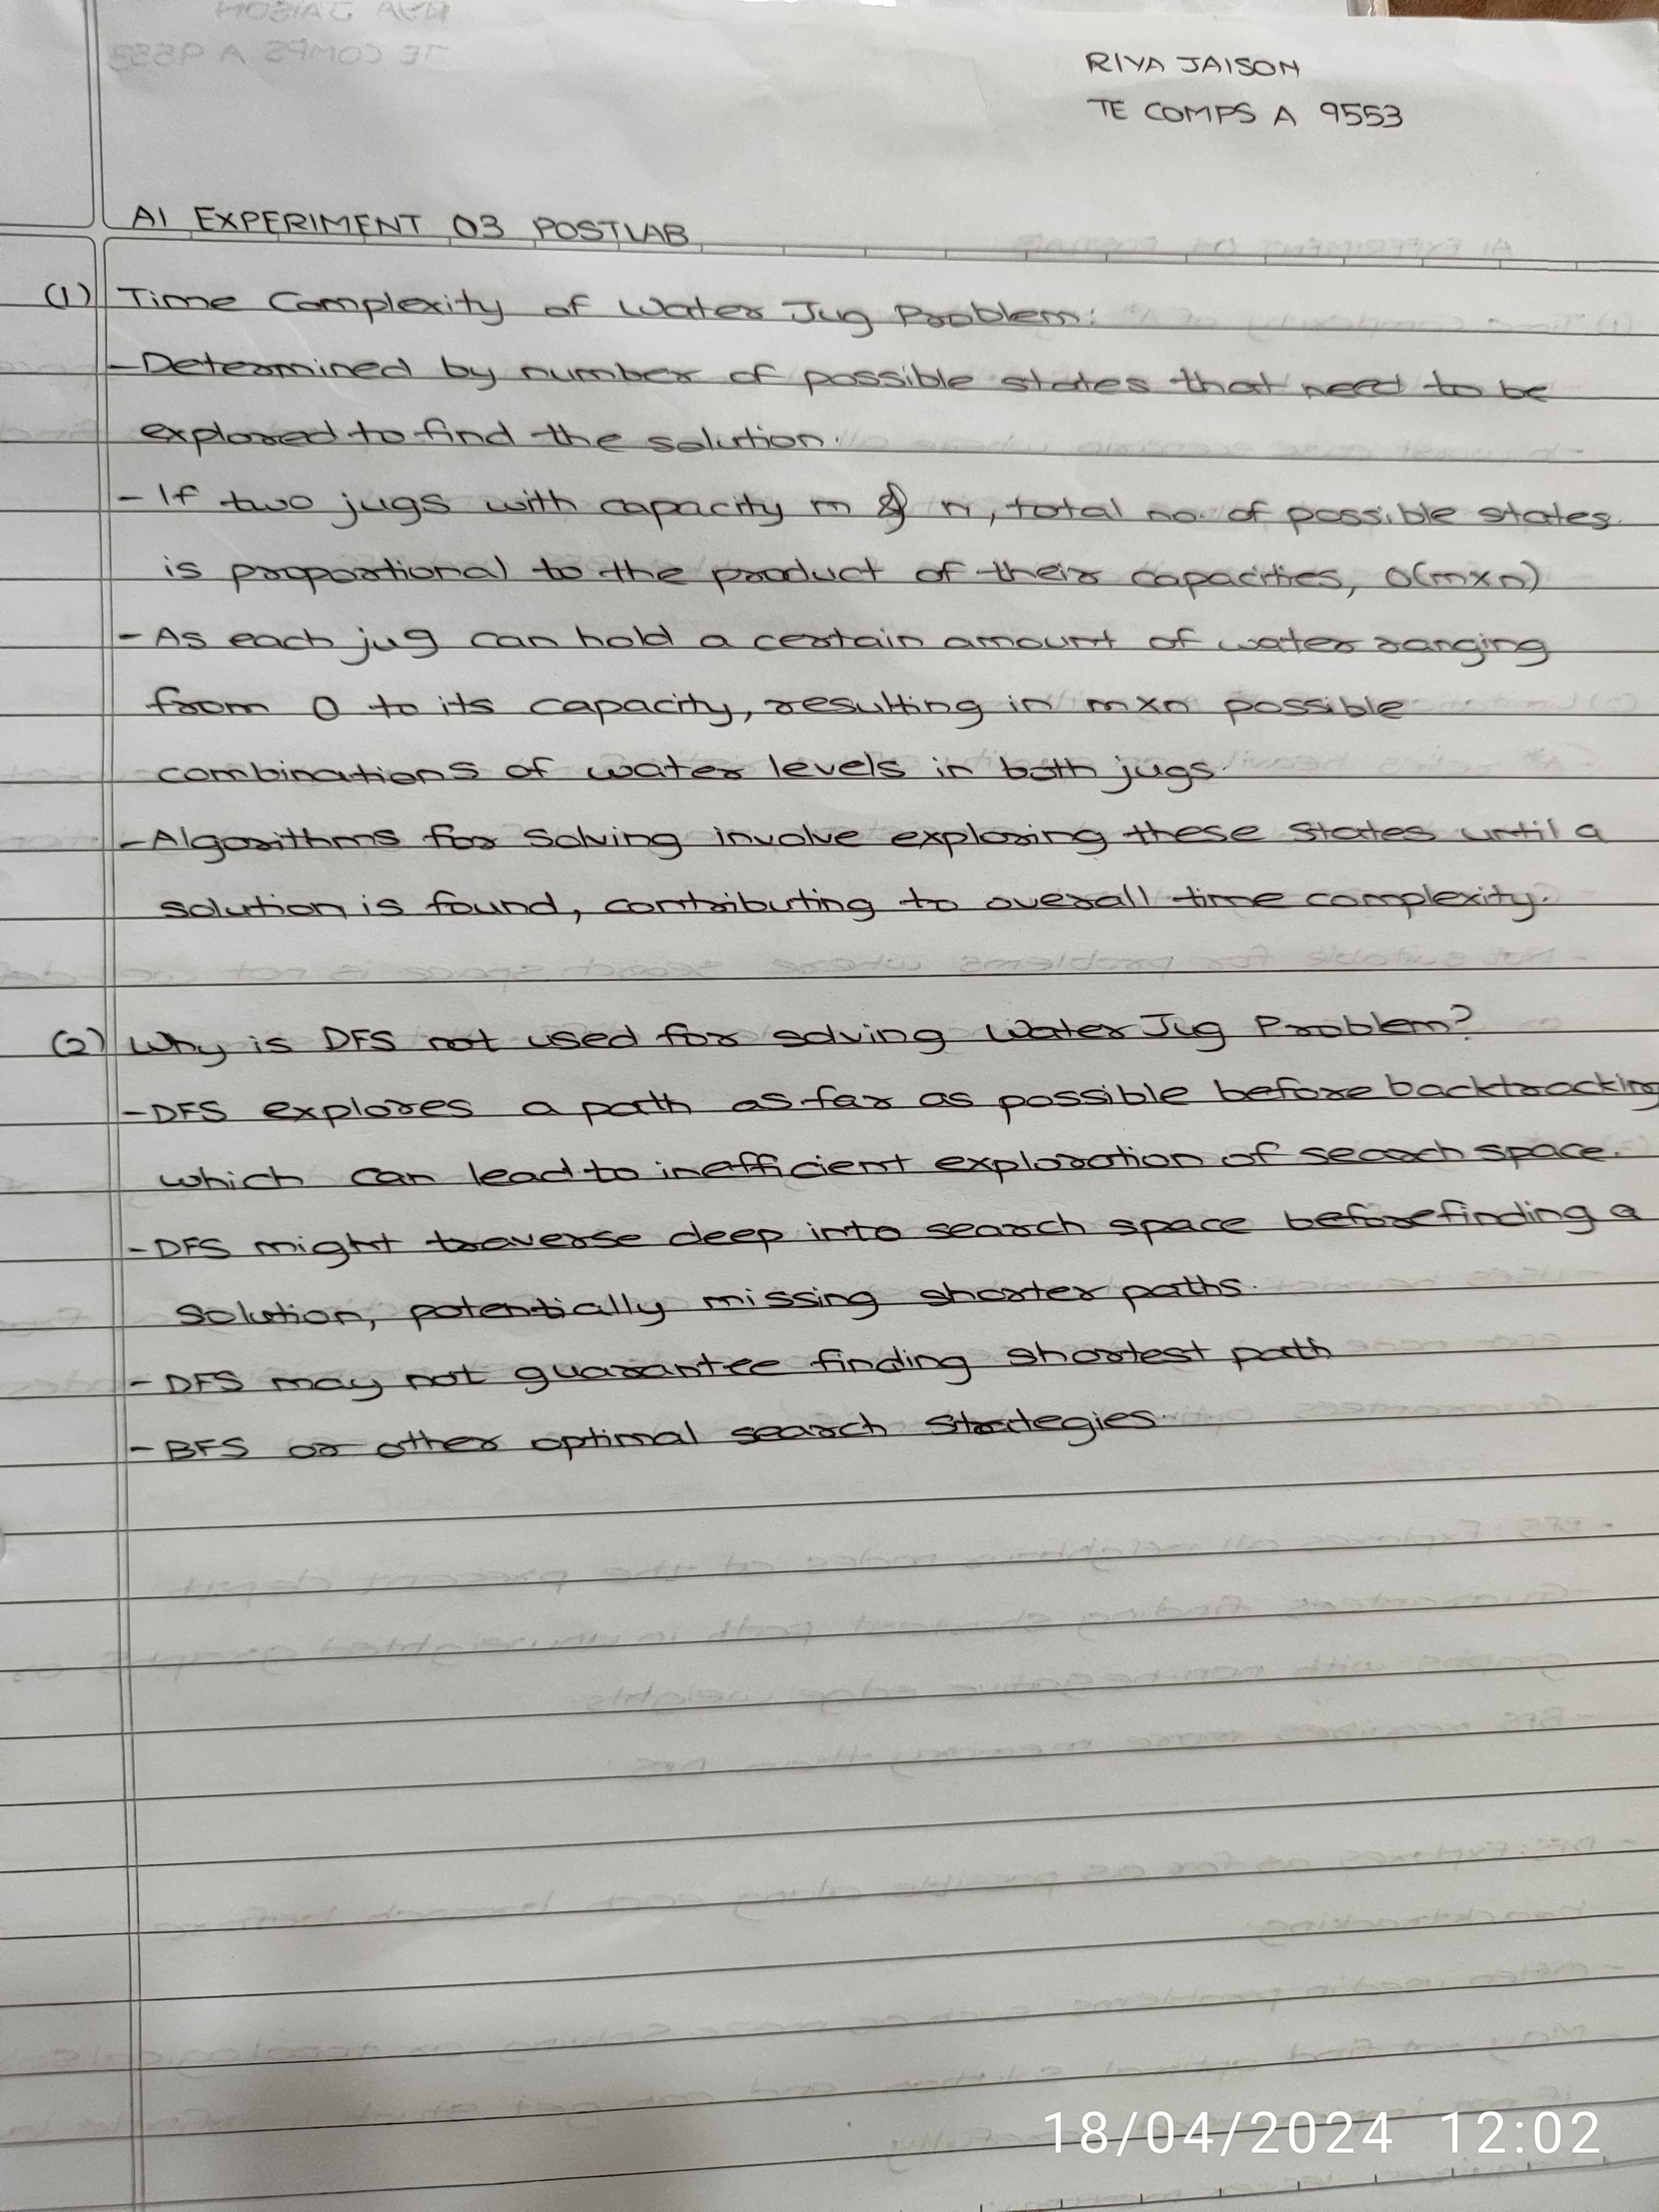 RIYA JAISON
TE COMPS A 9553
AI EXPERIMENT 03 POSTLAB
(1) Time Complexity of Water Jug Problem:
- Determined by number of possible states that need to be
explored to find the solution.
- If two jugs with capacity m & n, total no. of possible states
is proportional to the product of their capacities, O(m×n)
- As each jug can hold a certain amount of water ranging
from 0 to its capacity, resulting in m×n possible
combinations of water levels in both jugs.
- Algorithms for solving involve exploring these states until a
solution is found, contributing to overall time complexity.
(2) Why is DFS not used for solving Water Jug Problem?
- DFS explores a path as far as possible before backtracking
which can lead to inefficient exploration of search space.
- DFS might traverse deep into search space before finding a
solution, potentially missing shorter paths.
- DFS may not guarantee finding shortest path
- BFS or other optimal search strategies.
18/04/2024 12:02